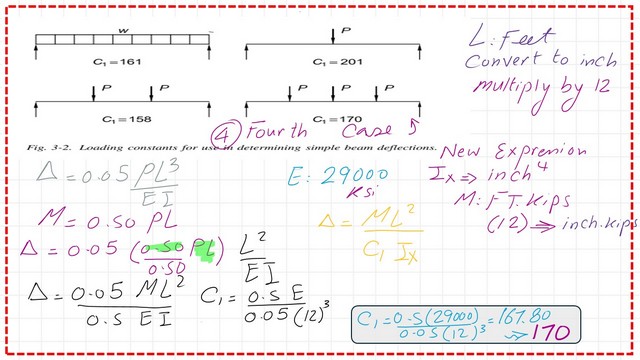 w
P
C₁=161
C₁=201
P P
P P P
C₁=158
C₁=170
④ Fourth Case
Fig. 3-2. Loading constants for use in determining simple beam deflections.
L: Feet
Convert to inch
multiply by 12
New Expression
Ix => inch⁴
M: FT. Kips
(12) => inch.kips
Δ = 0.05 PL³/EI
E: 29000
Ksi
M = 0.50 PL
Δ = ML²/C₁ Ix
Δ = 0.05 (0.50 PL/0.50) L²/EI
Δ = 0.05 ML²/0.5 EI
C₁ = 0.5 E/0.05 (12)³
C₁ = 0.5 (29000)/0.05 (12)³ = 167.80
=> 170